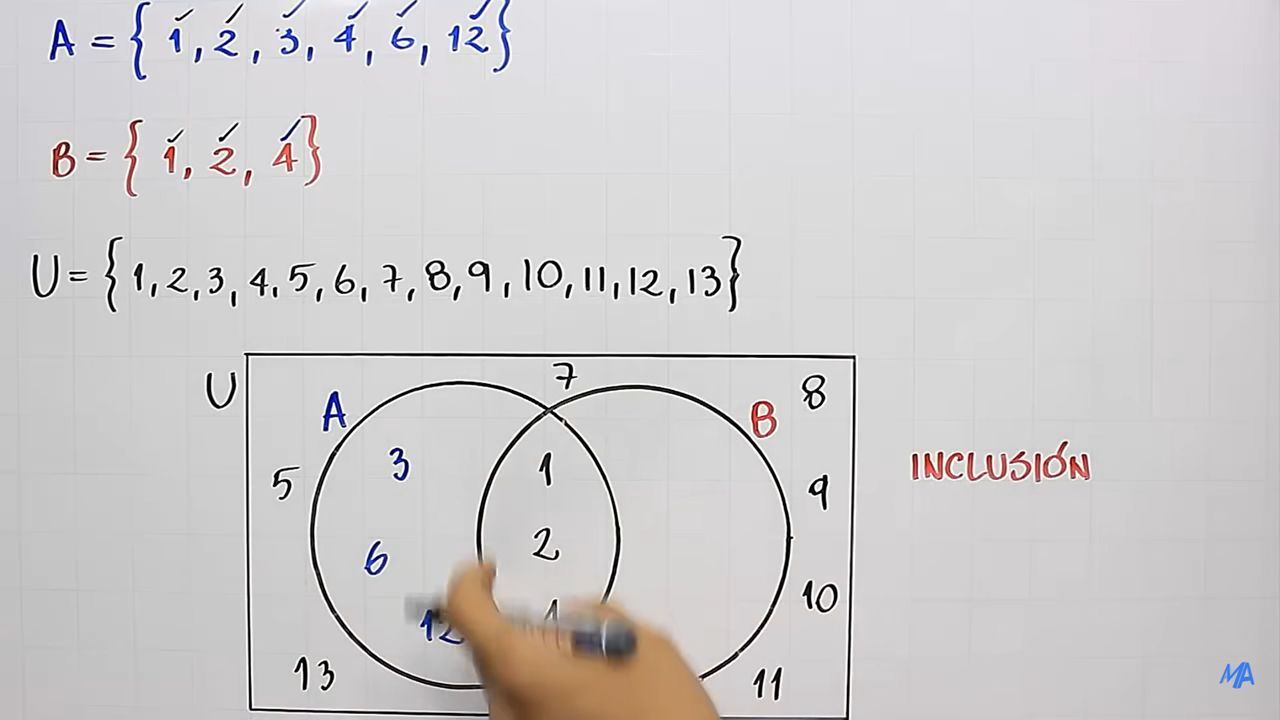 A = { 1, 2, 3, 4, 6, 12}
B = { 1, 2, 4}
U = { 1, 2, 3, 4, 5, 6, 7, 8, 9, 10, 11, 12, 13}
U 7 8
A B
3 1
5 9
INCLUSIÓN
6 2
10
12
13 11
MA